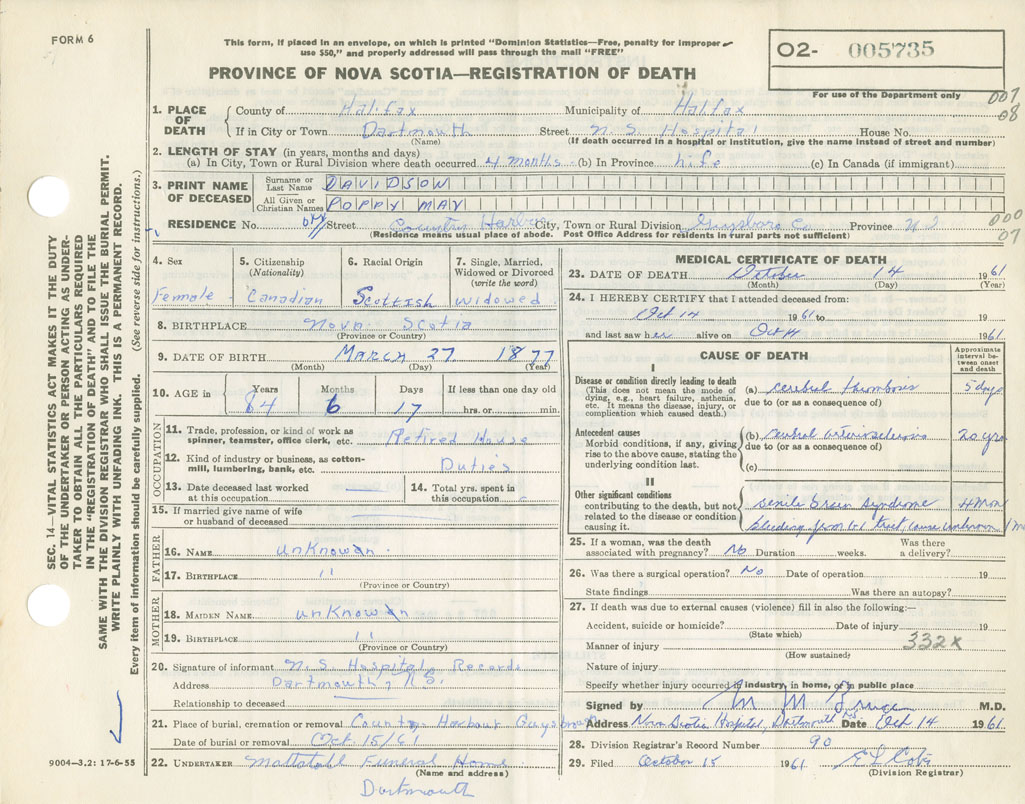 FORM 6
This form, if placed in an envelope, on which is printed "Dominion Statistics—Free, penalty for improper
use $50," and properly addressed will pass through the mail "FREE"
02- 005735
PROVINCE OF NOVA SCOTIA—REGISTRATION OF DEATH
For use of the Department only
007
08
1. PLACE OF DEATH
County of Halifax Municipality of Halifax
If in City or Town Dartmouth Street N. S. Hospital House No.
(Name) (If death occurred in a hospital or institution, give the name instead of street and number)
2. LENGTH OF STAY (in years, months and days)
(a) In City, Town or Rural Division where death occurred 4 months (b) In Province Life (c) In Canada (if immigrant)
3. PRINT NAME OF DECEASED
Surname or Last Name DAVIDSON
All Given or Christian Names POPPY MAY
RESIDENCE No. Street Country Harbor City, Town or Rural Division Guysboro Co Province N S
000
07
(Residence means usual place of abode. Post Office Address for residents in rural parts not sufficient)
4. Sex Female
5. Citizenship (Nationality) Canadian
6. Racial Origin Scottish
7. Single, Married, Widowed or Divorced (write the word) widowed
8. BIRTHPLACE Nova Scotia
(Province or Country)
9. DATE OF BIRTH March 27 1877
(Month) (Day) (Year)
10. AGE in Years 84 Months 6 Days 17 If less than one day old hrs. or min.
OCCUPATION
11. Trade, profession, or kind of work as spinner, teamster, office clerk, etc. Retired House
12. Kind of industry or business, as cotton-mill, lumbering, bank, etc. Duties
13. Date deceased last worked at this occupation
14. Total yrs. spent in this occupation
15. If married give name of wife or husband of deceased
FATHER
16. NAME unKnowan
17. BIRTHPLACE "
(Province or Country)
MOTHER
18. MAIDEN NAME unKnowan
19. BIRTHPLACE "
(Province or Country)
20. Signature of informant N. S. Hospital Records
Address Dartmouth, N.S.
Relationship to deceased
21. Place of burial, cremation or removal Country Harbour Guysboro
Date of burial or removal Oct 15/61
22. UNDERTAKER Mattatall Funeral Home
(Name and address)
Dartmouth
MEDICAL CERTIFICATE OF DEATH
23. DATE OF DEATH October 14 1961
(Month) (Day) (Year)
24. I HEREBY CERTIFY that I attended deceased from:
Oct 14 1961 to 19
and last saw her alive on Oct 14 1961
CAUSE OF DEATH
Approximate interval between onset and death
I
Disease or condition directly leading to death
(This does not mean the mode of dying, e.g., heart failure, asthenia, etc. It means the disease, injury, or complication which caused death.)
(a) cerebral thrombosis 5 days
due to (or as a consequence of)
Antecedent causes
Morbid conditions, if any, giving rise to the above cause, stating the underlying condition last.
(b) cerebral arteriosclerosis 20 yrs
due to (or as a consequence of)
(c)
II
Other significant conditions
contributing to the death, but not related to the disease or condition causing it.
senile brain syndrome 4 mon
bleeding from tract cause unknown
25. If a woman, was the death associated with pregnancy? No Duration weeks. Was there a delivery?
26. Was there a surgical operation? No Date of operation 19
State findings Was there an autopsy?
27. If death was due to external causes (violence) fill in also the following:—
Accident, suicide or homicide? Date of injury 19
(State which)
332X
Manner of injury
(How sustained)
Nature of injury
Specify whether injury occurred in industry, in home, or in public place
Signed by M. M. M.D.
Address Nova Scotia Hospital, Dartmouth NS Date Oct 14 1961
28. Division Registrar's Record Number 90
29. Filed October 15 1961
(Division Registrar)
SEC. 14—VITAL STATISTICS ACT MAKES IT THE DUTY
OF THE UNDERTAKER OR PERSON ACTING AS UNDER-
TAKER TO OBTAIN ALL THE PARTICULARS REQUIRED
IN THE "REGISTRATION OF DEATH" AND TO FILE THE
SAME WITH THE DIVISION REGISTRAR WHO SHALL ISSUE THE BURIAL PERMIT.
WRITE PLAINLY WITH UNFADING INK. THIS IS A PERMANENT RECORD.
Every item of information should be carefully supplied. (See reverse side for instructions.)
9004—3.2: 17-6-55